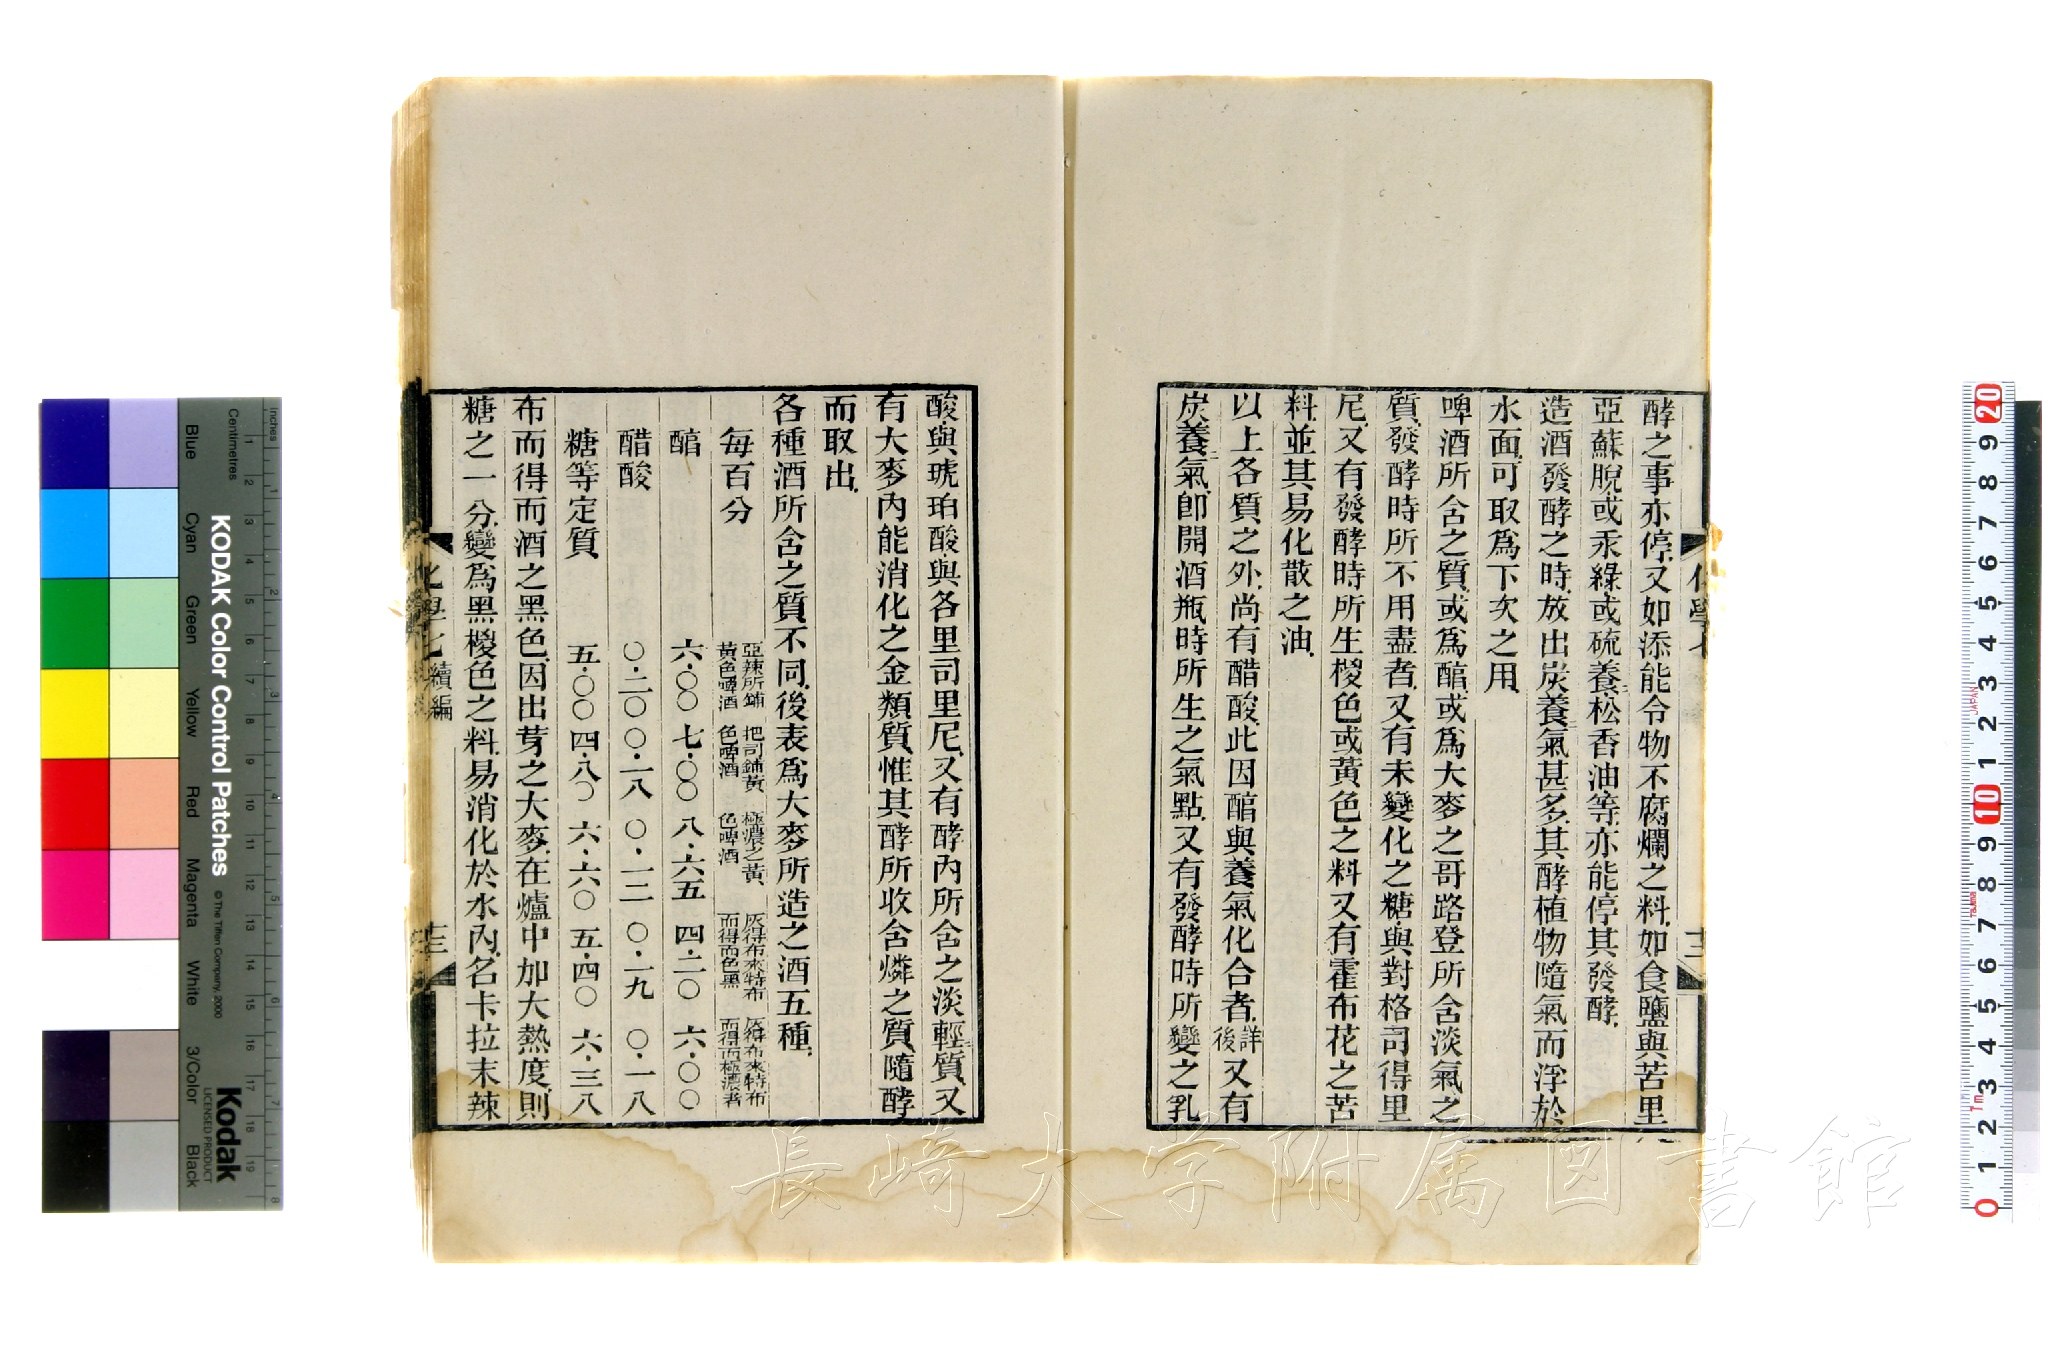 酵之事亦停又如添能令物不腐爛之料如食鹽與苦里
亞蘇脫或汞綠或硫養二松香油等亦能停其發酵
造酒發酵之時放出炭養二氣甚多其酵植物隨氣而浮於
水面可取為下次之用
啤酒所含之質或為醕或為大麥之哥路登所含淡氣之
質發酵時所不用盡者又有未變化之糖與對格司得里
尼又有發酵時所生椶色或黃色之料又有霍布花之苦
料並其易化散之油
以上各質之外尚有醋酸此因醕與養氣化合者詳後又有
炭養二氣卽開酒瓶時所生之氣點又有發酵時所變之乳
酸與琥珀酸與各里司里尼又有酵內所含之淡輕三質又
有大麥內能消化之金類質惟其酵所收含燐之質隨酵
而取出
各種酒所含之質不同後表為大麥所造之酒五種
每百分 亞辣所鋪黃色啤酒 把司鋪黃色啤酒 極濃之黃色啤酒 灰得布來特布而得而色黑 灰得布來特布而得而極濃者
醕 六·〇〇 七·〇〇 八·六五 四·二〇 六·〇〇
醋酸 〇·二〇 〇·一八 〇·一二 〇·一九 〇·一八
糖等定質 五·〇〇 四·八〇 六·六〇 五·四〇 六·三八
布而得而酒之黑色因出芽之大麥在爐中加大熱度則
糖之一分變為黑椶色之料易消化於水內名卡拉末辣
化學七 續編
十三
長崎大学附属図書館
KODAK Color Control Patches
© The Tiffen Company, 2000
Kodak
LICENSED PRODUCT
Inches
Centimetres
Blue
Cyan
Green
Yellow
Red
Magenta
White
3/Color
Black
JAPAN
7m